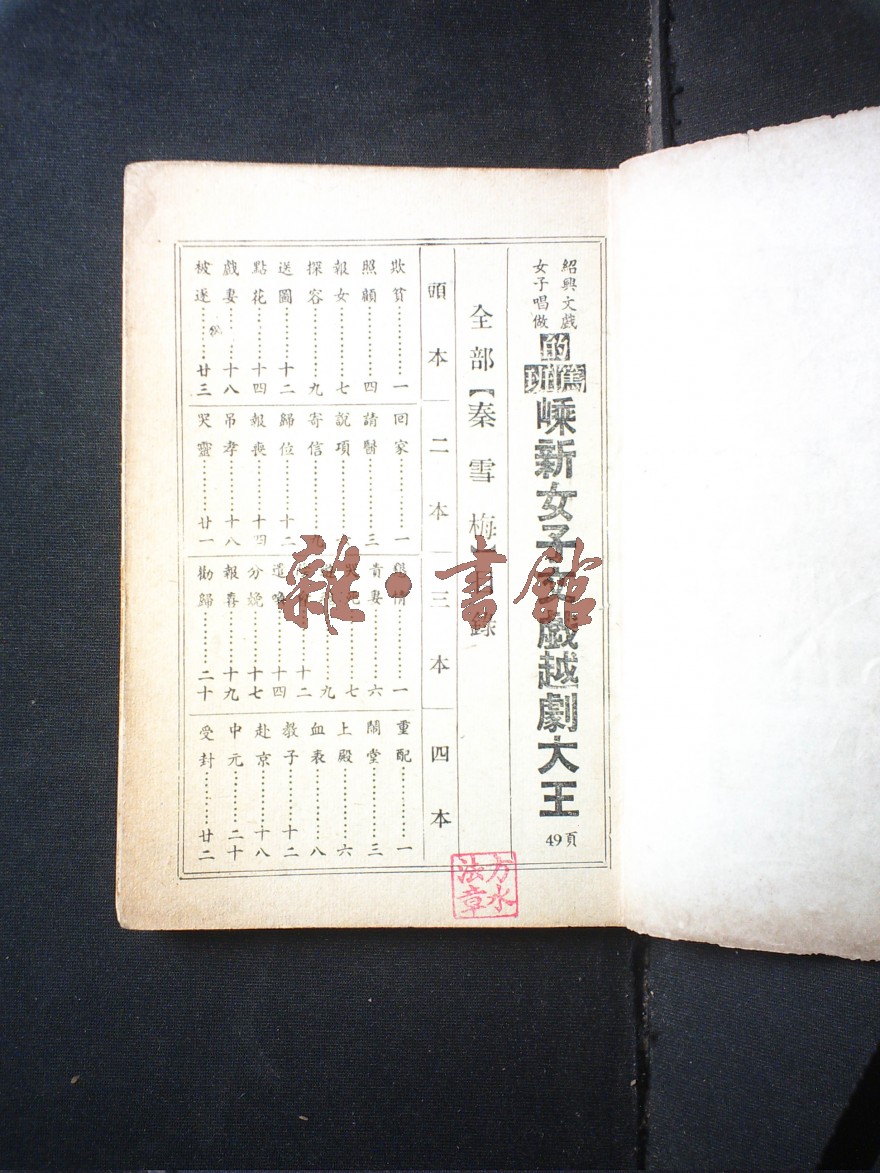 紹興文戲
女子唱做
的篤班
嵊新女子文戲越劇大王
49頁
全部【秦雪梅】目錄
頭本
欺貧…………一
照顧…………四
報女…………七
探容…………九
送圖………十二
點花………十四
戲妻………十八
被逐………廿三
二本
回家…………一
請醫…………三
說項…………
寄信…………九
歸位………十二
報喪………十四
吊孝………十八
哭靈………廿一
三本
情…………一
責妻…………六
七
九
十二
十四
分娩………十七
報喜………十九
勸歸………二十
四本
重配…………一
鬧堂…………三
上殿…………六
血表…………八
教子………十二
赴京………十八
中元………二十
受封………廿二
方水法章
雜·書館